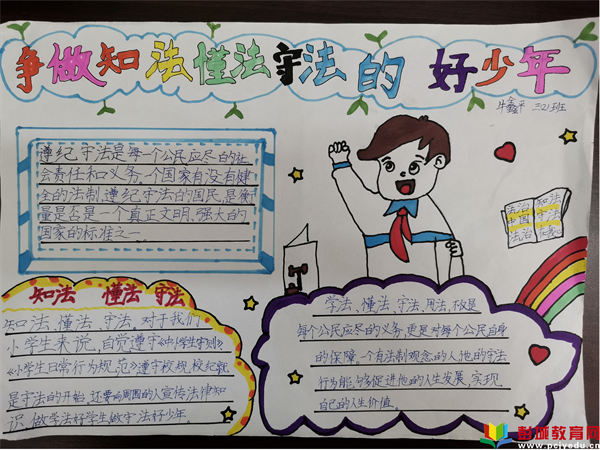 争做知法懂法守法的 好少年
牛鑫平 三(2)班
遵纪守法是每一个公民应尽的社
会责任和义务,个国家有没有健
全的法制,遵纪守法的国民,是衡
量是否是一个真正文明、强大的
国家的标准之一
法治 知法
中国 守法
法治
知法 懂法 守法
知法、懂法、守法,对于我们
小学生来说,自觉遵守《中小学生守则》
《小学生日常行为规范》遵守校规、校纪就
是守法的开始,还要向周围的人宣传法律知
识,做学法好学生,做守法好少年。
学法、懂法、守法、用法,不仅是
每个公民应尽的义务,更是对每个公民自身
的保障。一个有法制观念的人,他的守法
行为能够促进他的人生发展,实现
自己的人生价值。
彭城教育网
www.pcjyedu.cn